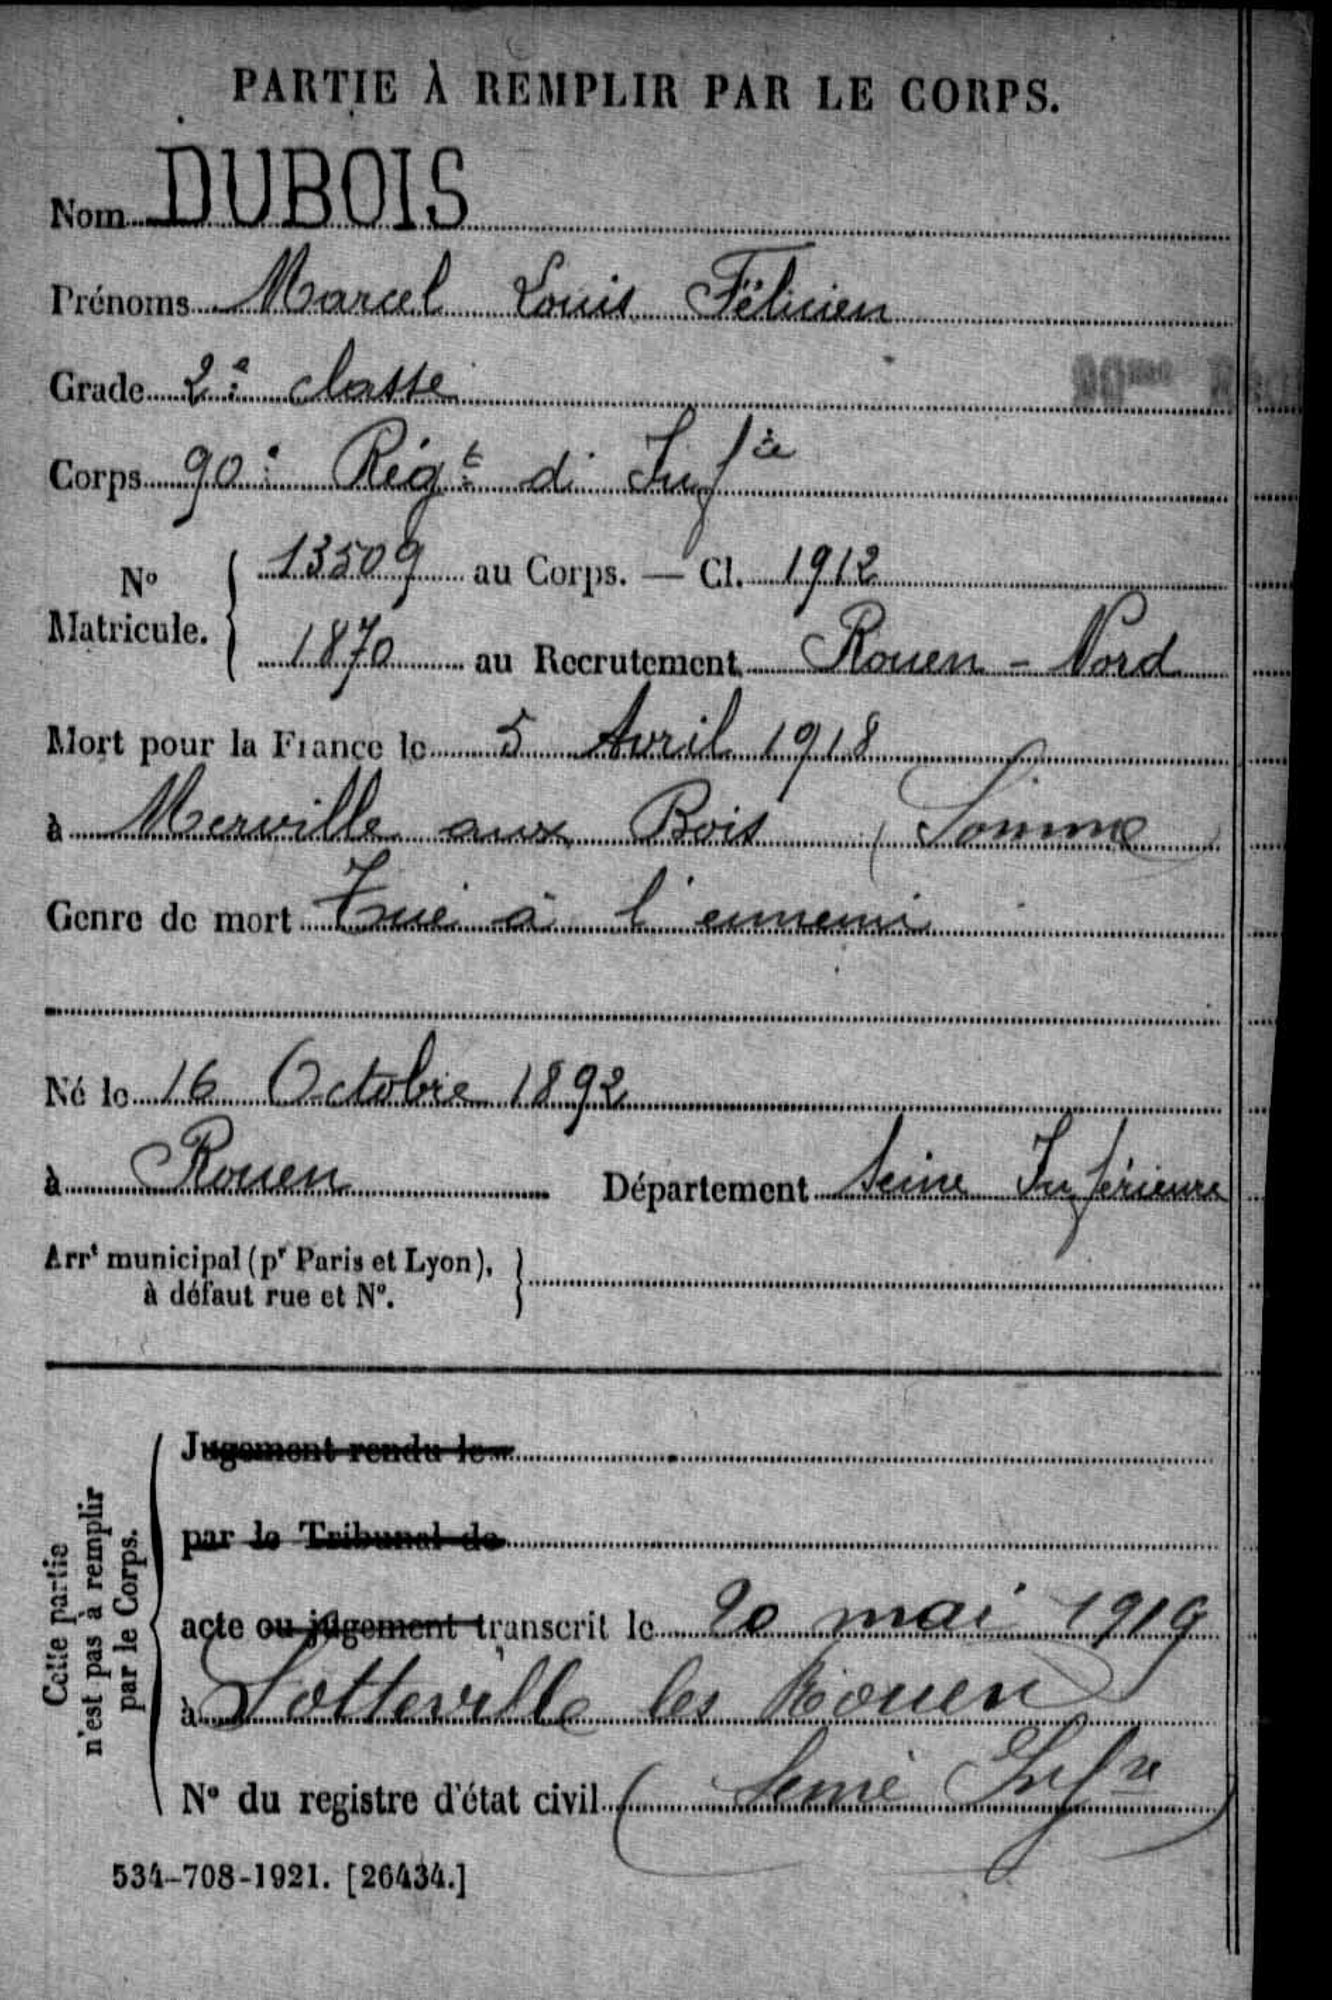 PARTIE À REMPLIR PAR LE CORPS.
Nom DUBOIS
Prénoms Marcel Louis Félicien
Grade 2e classe
90me
Corps 90e Régt di Infie
No Matricule. { 13509 au Corps. — Cl. 1912
1870 au Recrutement Rouen - Nord
Mort pour la France le 5 Avril 1918
à Merville aux Bois (Somme)
Genre de mort Tué à l'ennemi
Né le 16 Octobre 1892
à Rouen Département Seine Inférieure
Arrt municipal (pr Paris et Lyon), }
à défaut rue et No.
Cette partie
n'est pas à remplir
par le Corps.
Jugement rendu le
par le Tribunal de
acte ou jugement transcrit le 20 mai 1919
à Sotteville les Rouen
No du registre d'état civil (Seine Infre)
534-708-1921. [26434.]